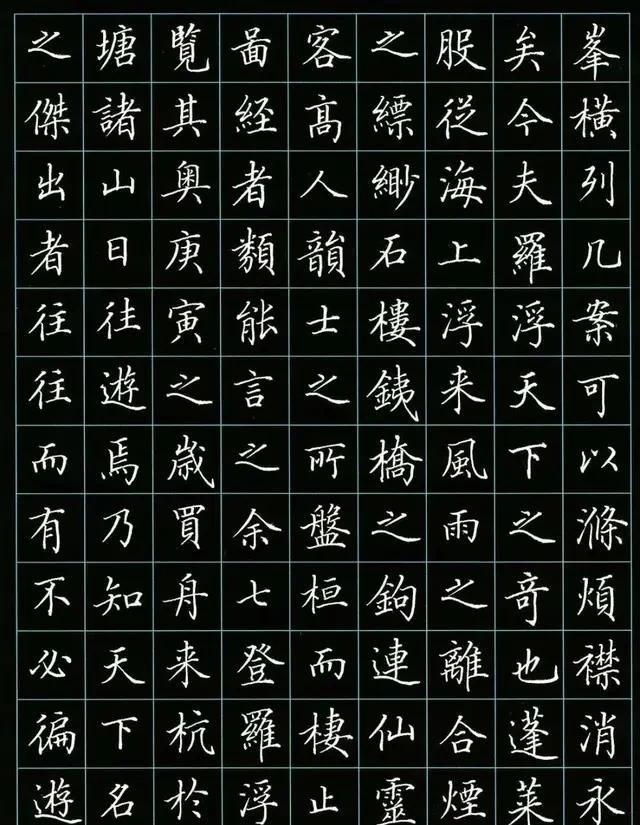 峯橫列几案可以滌煩襟消永
矣今夫羅浮天下之奇也蓬萊
股從海上浮来風雨之離合煙
之縹緲石樓銕橋之鉤連仙靈
客高人韻士之所盤桓而棲止
啚経者類能言之余七登羅浮
覽其奥庚寅之歳買舟来杭於
塘諸山日往遊焉乃知天下名
之傑出者往往而有不必徧遊